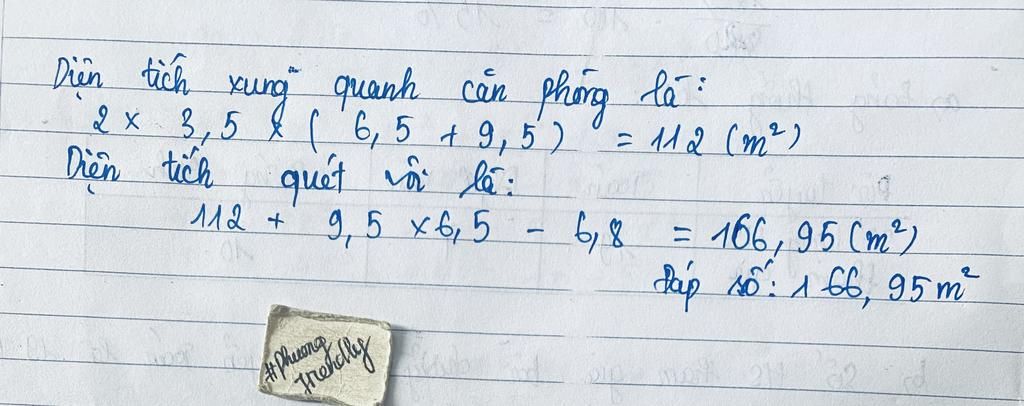 Diện tích xung quanh căn phòng là:
2 x 3,5 x ( 6,5 + 9,5 ) = 112 (m²)
Diện tích quét vôi là:
112 + 9,5 x 6,5 - 6,8 = 166,95 (m²)
Đáp số: 166,95 m²
#phuong
friendly